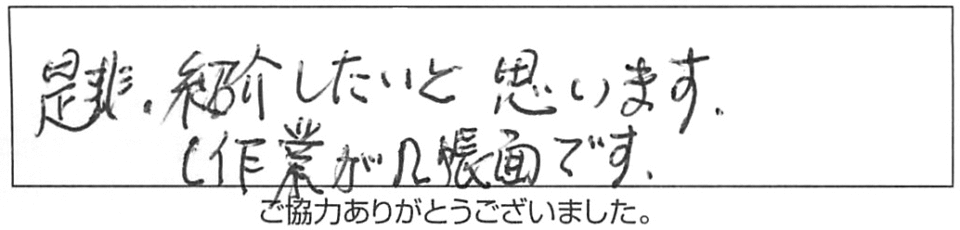 是非、紹介したいと思います。
(作業が几帳面です。
ご協力ありがとうございました。